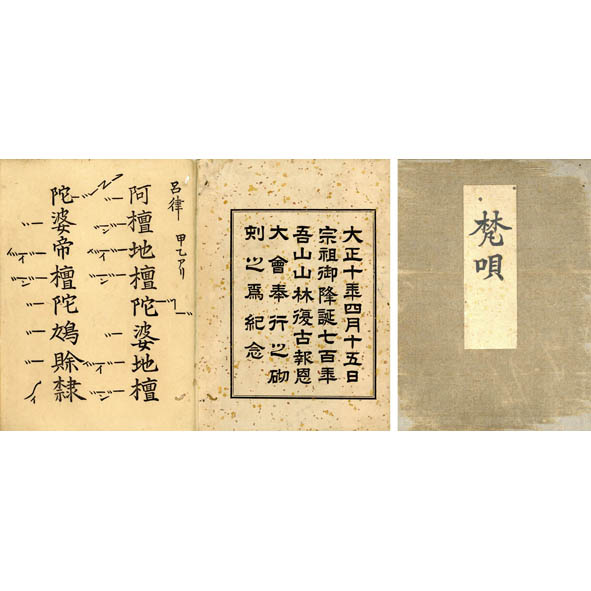 梵唄
大正十年四月十五日
宗祖御降誕七百年
吾山山林復古報恩
大會奉行之砌
刻之爲紀念
呂律 甲乙アリ
阿檀地檀陀婆地檀
陀婆帝檀陀鳩賖隸